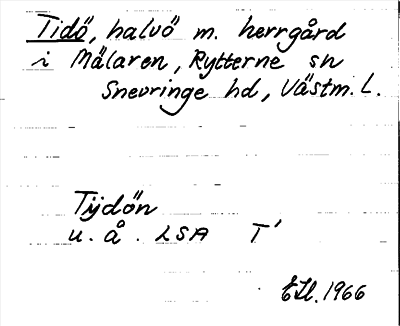 Tidö, halvö m. herrgård
i Mälaren, Rytterne sn
Snevringe hd, Västm. L.
Tijdön
u. å. LSA T'
1966